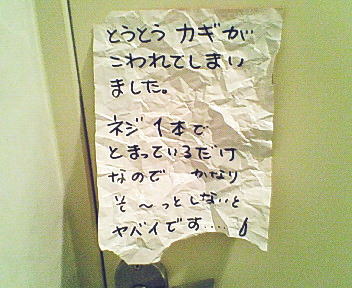 とうとう カギが
こわれてしまい
ました。
ネジ1本で
とまっているだけ
なので かなり
そ〜っとしないと
ヤバイです....